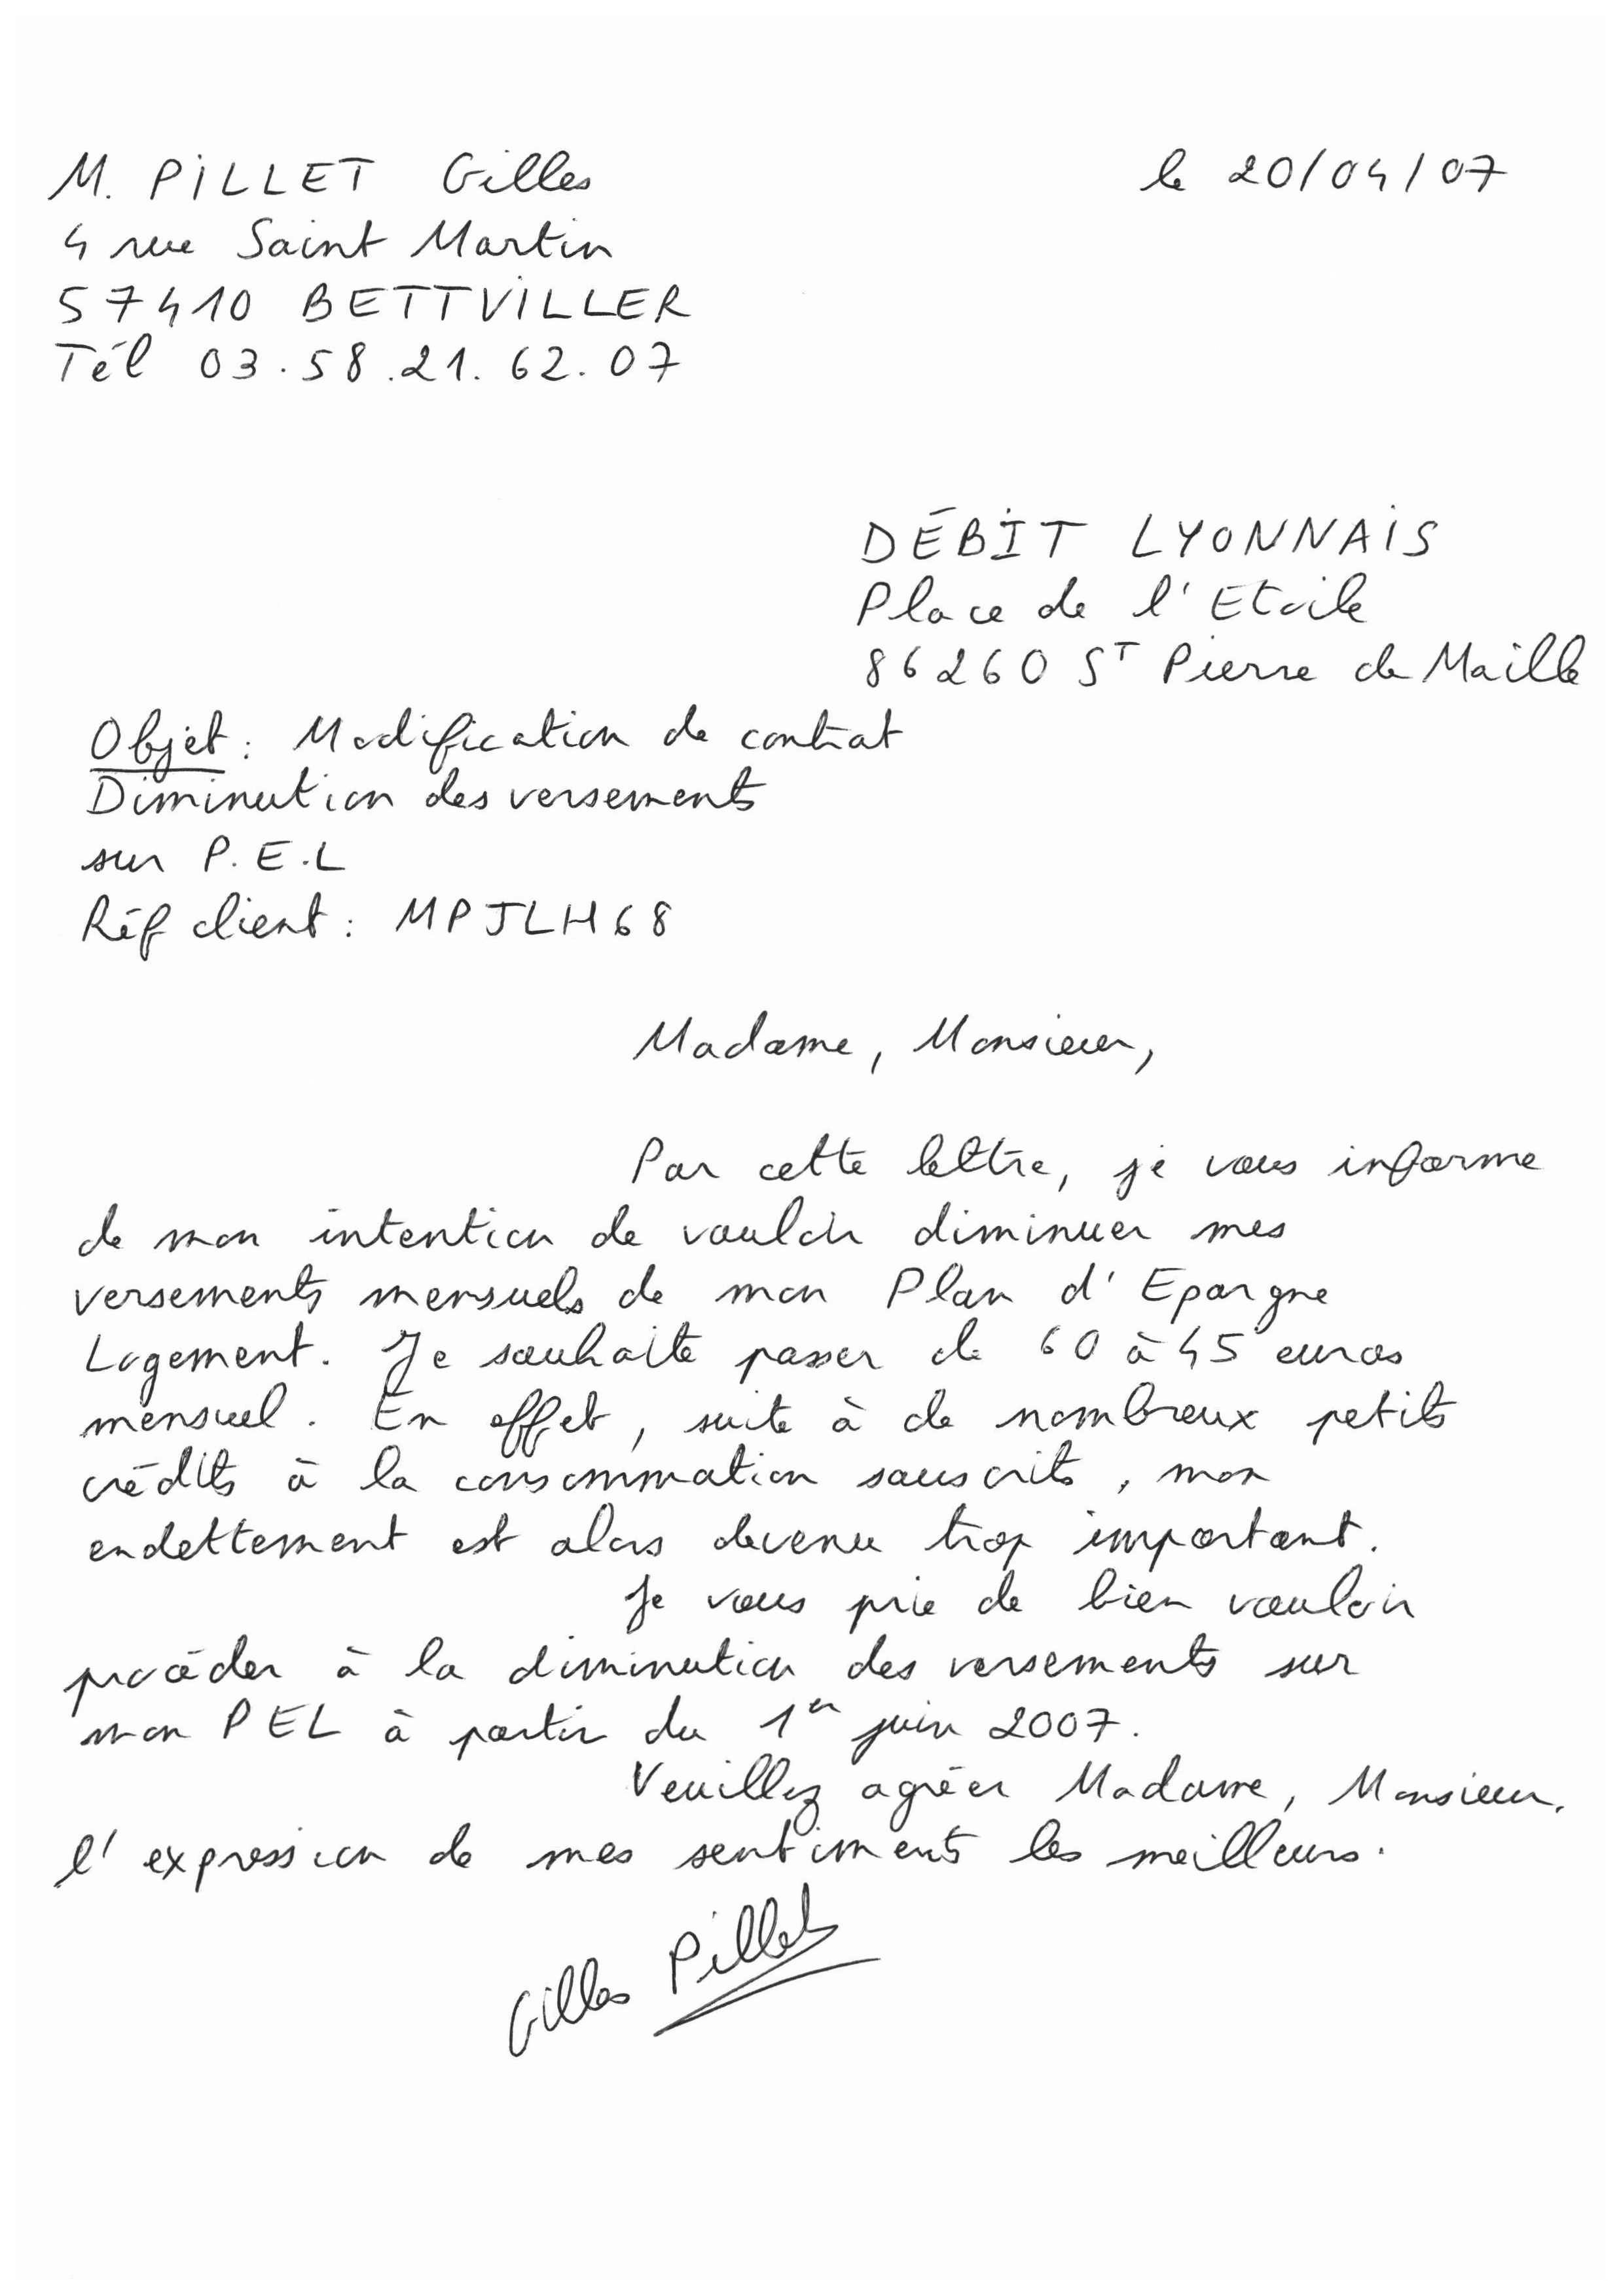 M. PILLET Gilles
le 20/04/07
4 rue Saint Martin
57410 BETTVILLER
Tél 03.58.21.62.07
DÉBIT LYONNAIS
Place de l'Etoile
86260 St Pierre de Maille
Objet : Modification de contrat
Diminution des versements
sur P.E.L
Réf client : MPJLH68
Madame, Monsieur,
Par cette lettre, je vous informe
de mon intention de vouloir diminuer mes
versements mensuels de mon Plan d'Epargne
Logement. Je souhaite passer de 60 à 45 euros
mensuel. En effet, suite à de nombreux petits
crédits à la consommation souscrits, mon
endettement est alors devenu trop important.
Je vous prie de bien vouloir
procéder à la diminution des versements sur
mon PEL à partir du 1er juin 2007.
Veuillez agréer Madame, Monsieur,
l'expression de mes sentiments les meilleurs.
Gilles Pillet